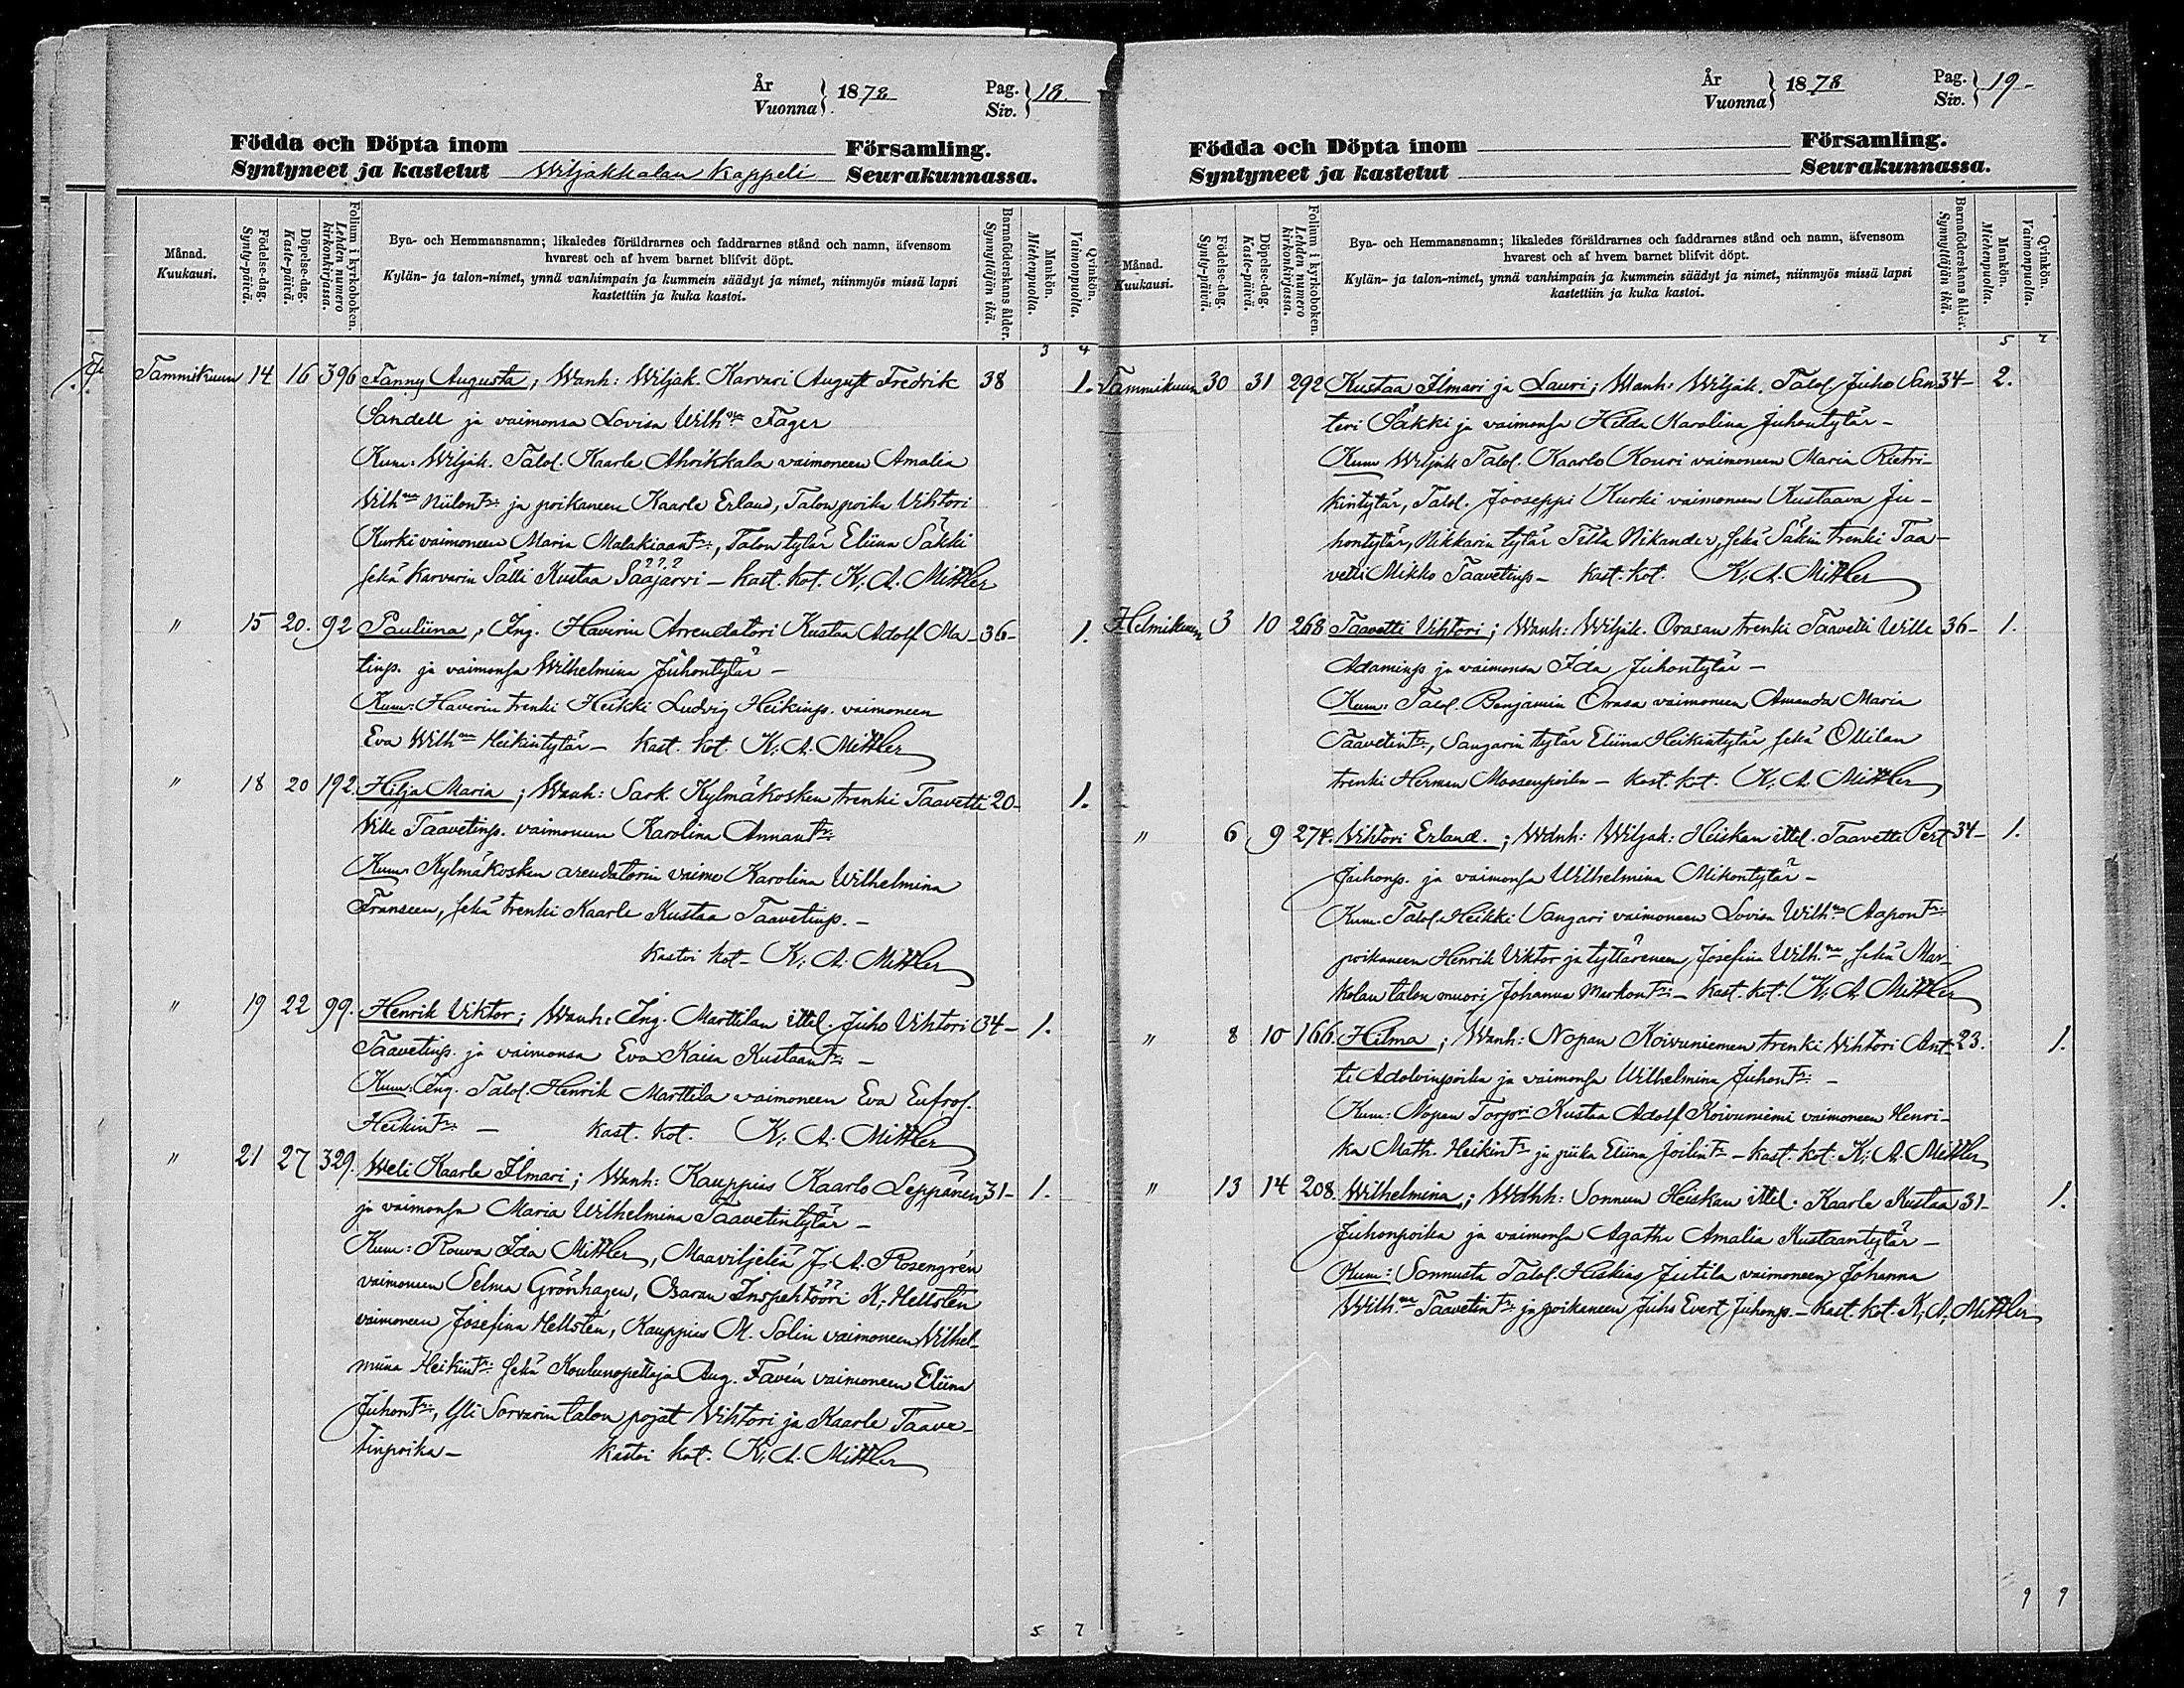 År
Vuonna } 1878 Pag.
Siv. } 18.
Födda och Döpta inom Församling.
Syntyneet ja kastetut Wiljakkalan Kappeli Seurakunnassa.
Månad.
Kuukausi.
Födelse-dag.
Synty-päivä.
Döpelse-dag.
Kaste-päivä.
Folium i kyrkoboken.
Lehden numero
kirkonkirjassa.
Bya- och Hemmansnamn; likaledes föräldrarnes och faddrarnes stånd och namn, äfvensom
hvarest och af hvem barnet blifvit döpt.
Kylän- ja talon-nimet, ynnä vanhimpain ja kummein säädyt ja nimet, niinmyös missä lapsi
kastettiin ja kuka kastoi.
Barnaföderskans ålder.
Synnyttäjän ikä.
Mankön.
Miehenpuolla.
Qvinkön.
Vaimonpuolla.
3 4
Tammikuun 14 16 396 Fanny Augusta; Wanh: Wiljak. Karvari August Fredrik 38 1.
Sandell ja vaimonsa Lovisa Wilhna Fager
Kum: Wiljak. Talol. Kaarle Ahrikkala vaimoneen Amalia
Vilhna Niilontr: ja poikaneen Kaarle Erland, Talon poika Vihtori
Kurki vaimoneen Maria Malakiaantr:, Talon tytär Eliina Säkki
sekä Karvarin Sälli Kustaa Sääjärvi - kast. kot. K. A. Mittler
" 15 20. 92 Pauliina; Ing. Haverin Arrendatori Kustaa Adolf Ma- 36- 1.
tinp. ja vaimonsa Wilhelmina Juhontytär -
Kum: Haverin trenki Heikki Ludvig Heikinp. vaimoneen
Eva Wilhna Heikintytär - kast. kot. K. A. Mittler
" 18 20 192. Hilja Maria; Wanh: Sark. Kylmäkosken trenki Taavetti 20- 1.
Ville Taavetinp. vaimoneen Karolina Annantr:
Kum: Kylmäkosken arendatorin vaimo Karolina Wilhelmina
Franseen, sekä trenki Kaarle Kustaa Taavetinp. -
kastoi kot - K. A. Mittler
" 19 22 99. Henrik Viktor; Wanh: Ing. Marttilan ittel. Juho Vihtori 34- 1.
Taavetinp. ja vaimonsa Eva Kaisa Kustaantr: -
Kum: Ing. Talol. Henrik Marttila vaimoneen Eva Eufros.
Heikintr: - kast. kot. K. A. Mittler
" 21 27 329. Weli Kaarle Ilmari; Wanh: Kauppias Kaarlo Leppänen 31- 1.
ja vaimonsa Maria Wilhelmina Taavetintytär -
Kum: Rouva Ida Mittler, Maaviljeliä J. A. Rosengrén
vaimoneen Selma Grönhagen, Osaran Inspehtööri K. Hellstén
vaimoneen Josefina Hellstén, Kauppias M. Salin vaimoneen Wilhel-
miina Heikintr: sekä Koulunopettaja Aug. Favén vaimoneen Eliina
Juhontr:, Yli Sorvarin talon pojat Vihtori ja Kaarle Taave-
tinpoika - kastoi kot. K. A. Mittler
5 7
År
Vuonna } 1878 Pag.
Siv. } 19-
Födda och Döpta inom Församling.
Syntyneet ja kastetut Seurakunnassa.
Månad.
Kuukausi.
Födelse-dag.
Synty-päivä.
Döpelse-dag.
Kaste-päivä.
Folium i kyrkoboken.
Lehden numero
kirkonkirjassa.
Bya- och Hemmansnamn; likaledes föräldrarnes och faddrarnes stånd och namn, äfvensom
hvarest och af hvem barnet blifvit döpt.
Kylän- ja talon-nimet, ynnä vanhimpain ja kummein säädyt ja nimet, niinmyös missä lapsi
kastettiin ja kuka kastoi.
Barnaföderskans ålder.
Synnyttäjän ikä.
Mankön.
Miehenpuolla.
Qvinkön.
Vaimonpuolla.
5 7
Tammikuun 30 31 292 Kustaa Ilmari ja Lauri; Wanh: Wiljak. Talol. Juho San- 34- 2.
teri Säkki ja vaimonsa Hilda Karolina Juhontytär -
Kum Wiljak Talol. Kaarlo Kouri vaimoneen Maria Rietri-
kintytär, Talol. Jooseppi Kurki vaimoneen Kustaava Ju-
hontytär, Nikkarin tytär Tilta Nikander, sekä Säkin trenki Taa-
vetti Mikko Taavetinp - kast. kot. K. A. Mittler
Helmikuun 3 10 268 Taavetti Vihtori; Wanh: Wiljak. Orasan trenki Taavetti Wille 36- 1.
Adaminp ja vaimonsa Ida Juhontytär -
Kum: Talol. Benjamin Orasa vaimoneen Amanda Maria
Taavetintr:, Sangarin tytär Eliina Heikintytär sekä Ollilan
trenki Herman Moosenpoika - kast. kot. K. A. Mittler
" 6 9 274. Vihtori Erland.; Wanh: Wiljak: Heiskan ittel. Taavetti Pert 34- 1.
Juhonp. ja vaimonsa Wilhelmina Mikontytär -
Kum. Talol. Heikki Sangari vaimoneen Lovisa Wilhna Aapontr:
poikaneen Henrik Viktor ja tyttäreneen Josefina Wilhna, sekä Mar-
kolan talon muori Johanna Markontr: - kast. kot. K. A. Mittler
" 8 10 166. Hilma; Wanh: Nopan Koivuniemen trenki Vihtori Ant- 23. 1.
ti Adolvinpoika ja vaimonsa Wilhelmina Juhontr: -
Kum: Nopan Torpri Kustaa Adolf Koivuniemi vaimoneen Henri-
ka Math. Heikintr ja piika Eliina Joilintr - kast. kot. K. A. Mittler
" 13 14 208. Wilhelmina; Wanh: Sonnun Heiskan ittel. Kaarle Kustaa 31- 1.
Juhonpoika ja vaimonsa Agatha Amalia Kustaantytär -
Kum: Sonnusta Talol. Hiskias Jutila vaimoneen Johanna
Wilhna Taavetintr: ja poikaneen Juho Evert Juhonp. - kast. kot. K. A. Mittler
9 9